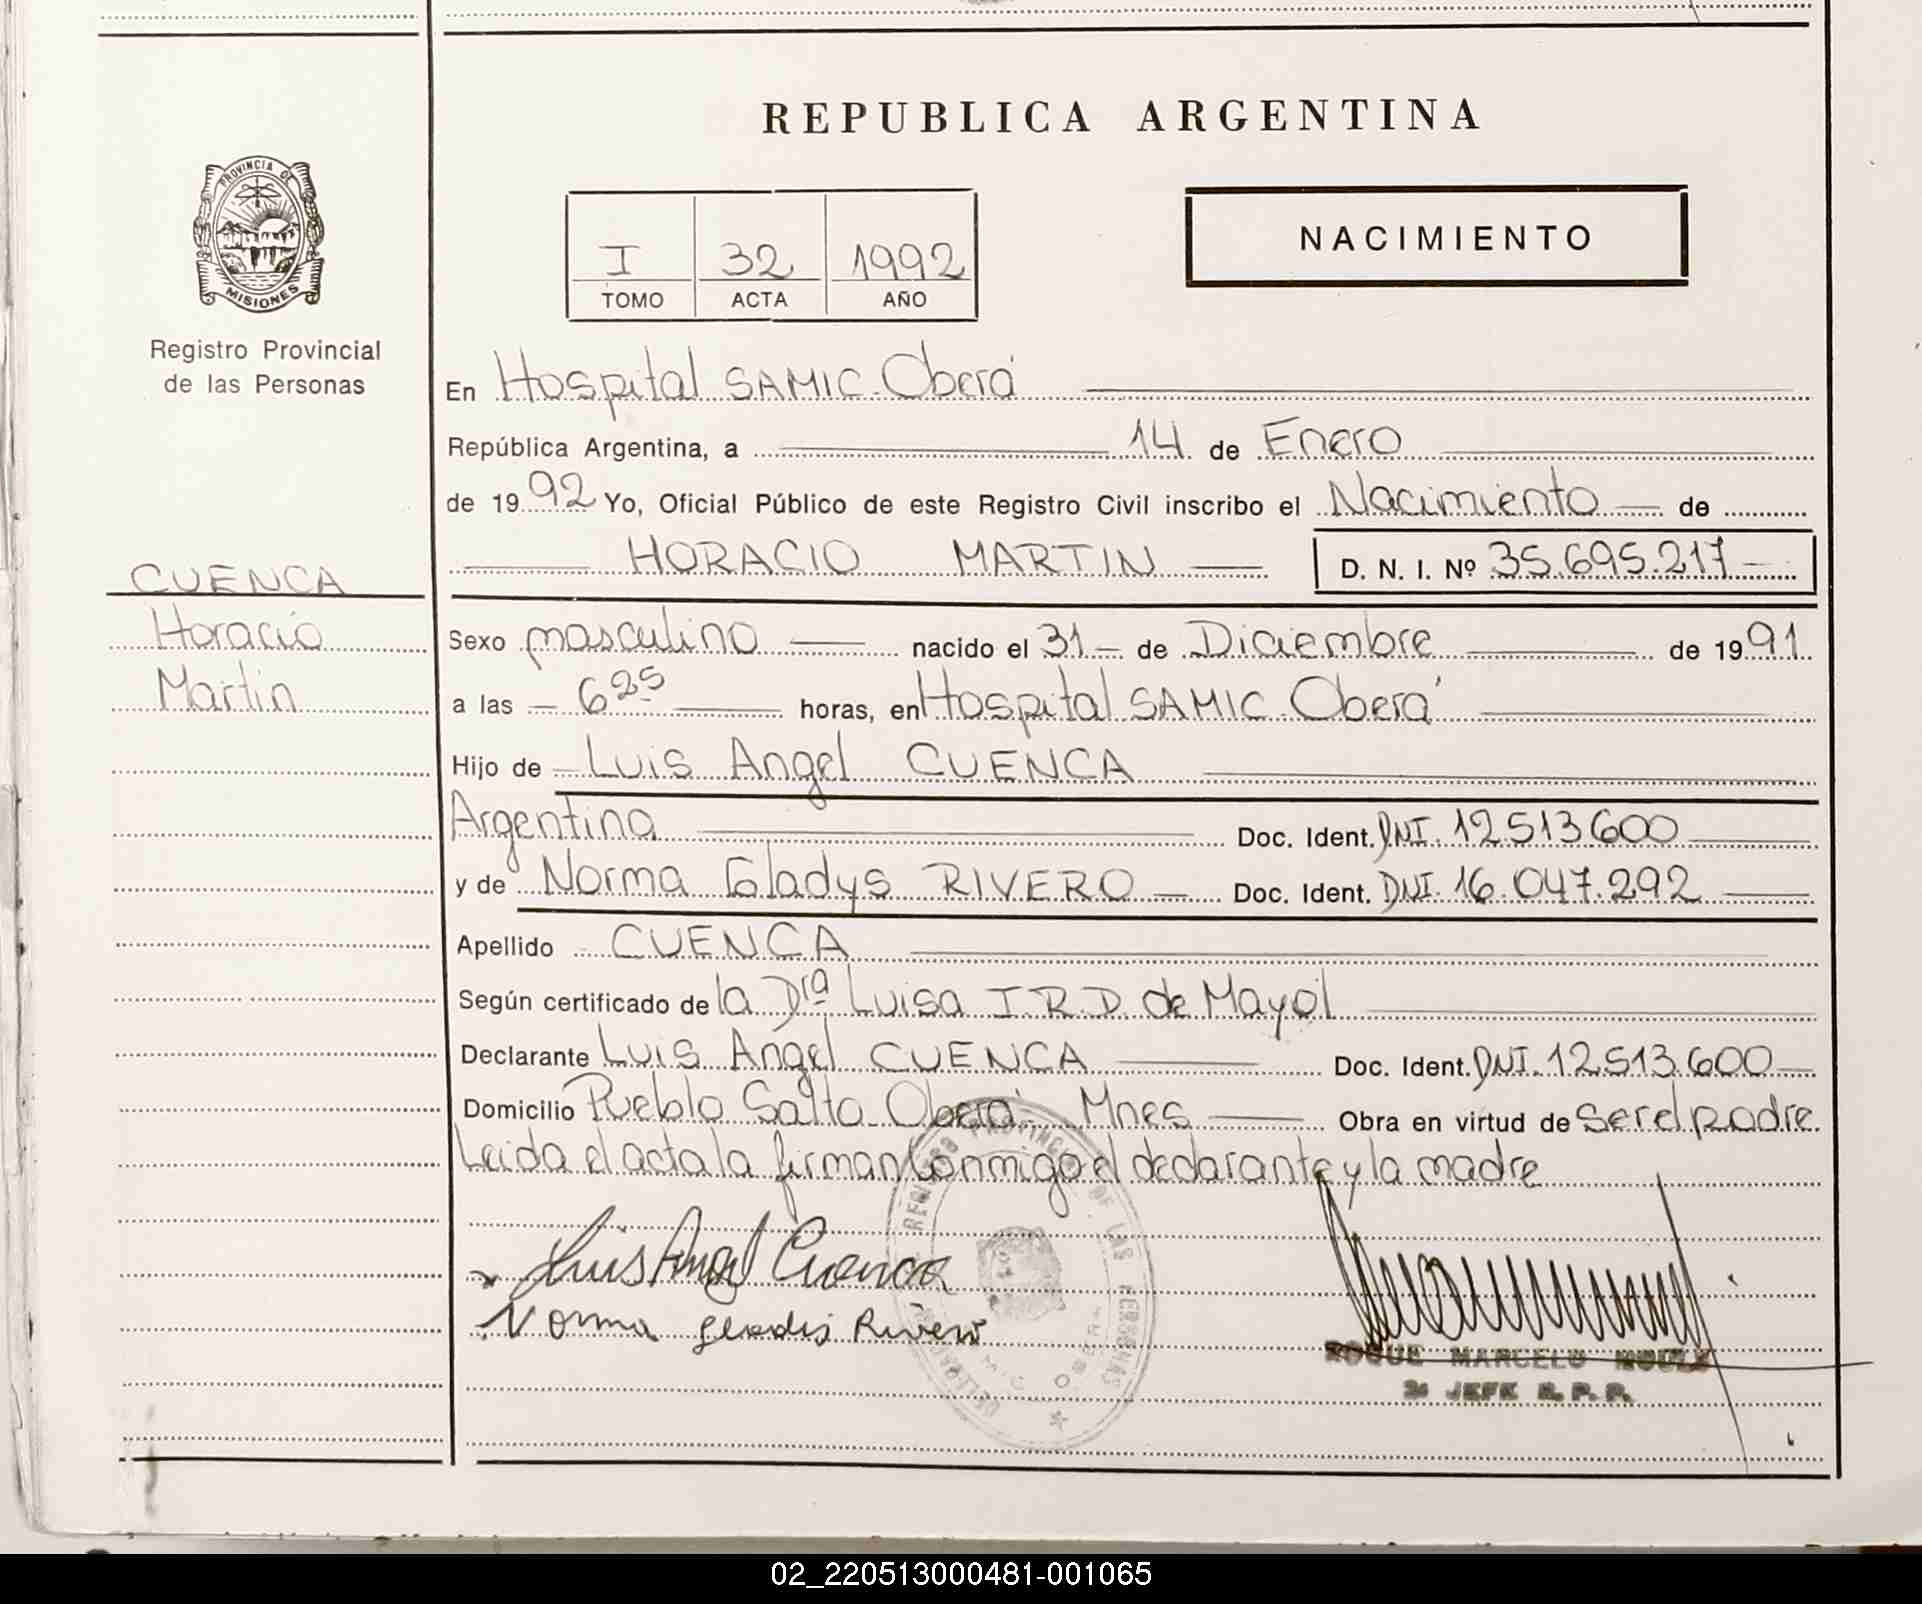 REPUBLICA ARGENTINA
PROVINCIA DE
MISIONES
Registro Provincial
de las Personas
NACIMIENTO
I 32 1992
TOMO ACTA AÑO
En Hospital SAMIC. Oberá
República Argentina, a 14 de Enero
de 1992 Yo, Oficial Público de este Registro Civil inscribo el Nacimiento de
HORACIO MARTIN D. N. I. Nº 35.695.217
CUENCA
Horacio
Martin
Sexo masculino nacido el 31 de Diciembre de 1991
a las 6 25 horas, en Hospital SAMIC. Oberá
Hijo de Luis Angel CUENCA
Argentina Doc. Ident. DNI. 12.513.600
y de Norma Gladys RIVERO Doc. Ident. DNI. 16.047.292
Apellido CUENCA
Según certificado de la Dra Luisa I.R.D. de Mayol
Declarante Luis Angel CUENCA Doc. Ident. DNI. 12.513.600
Domicilio Pueblo Salto Oberá Mnes Obra en virtud de ser el padre.
Leida el acta la firman conmigo el declarante y la madre
Luis Angel Cuenca
Norma gladis Rivero
REGISTRO PROVINCIAL DE LAS PERSONAS
ROQUE MARCELO
2º JEFE R. P. P.
02_220513000481-001065